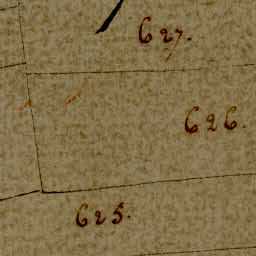 627.
626.
625.